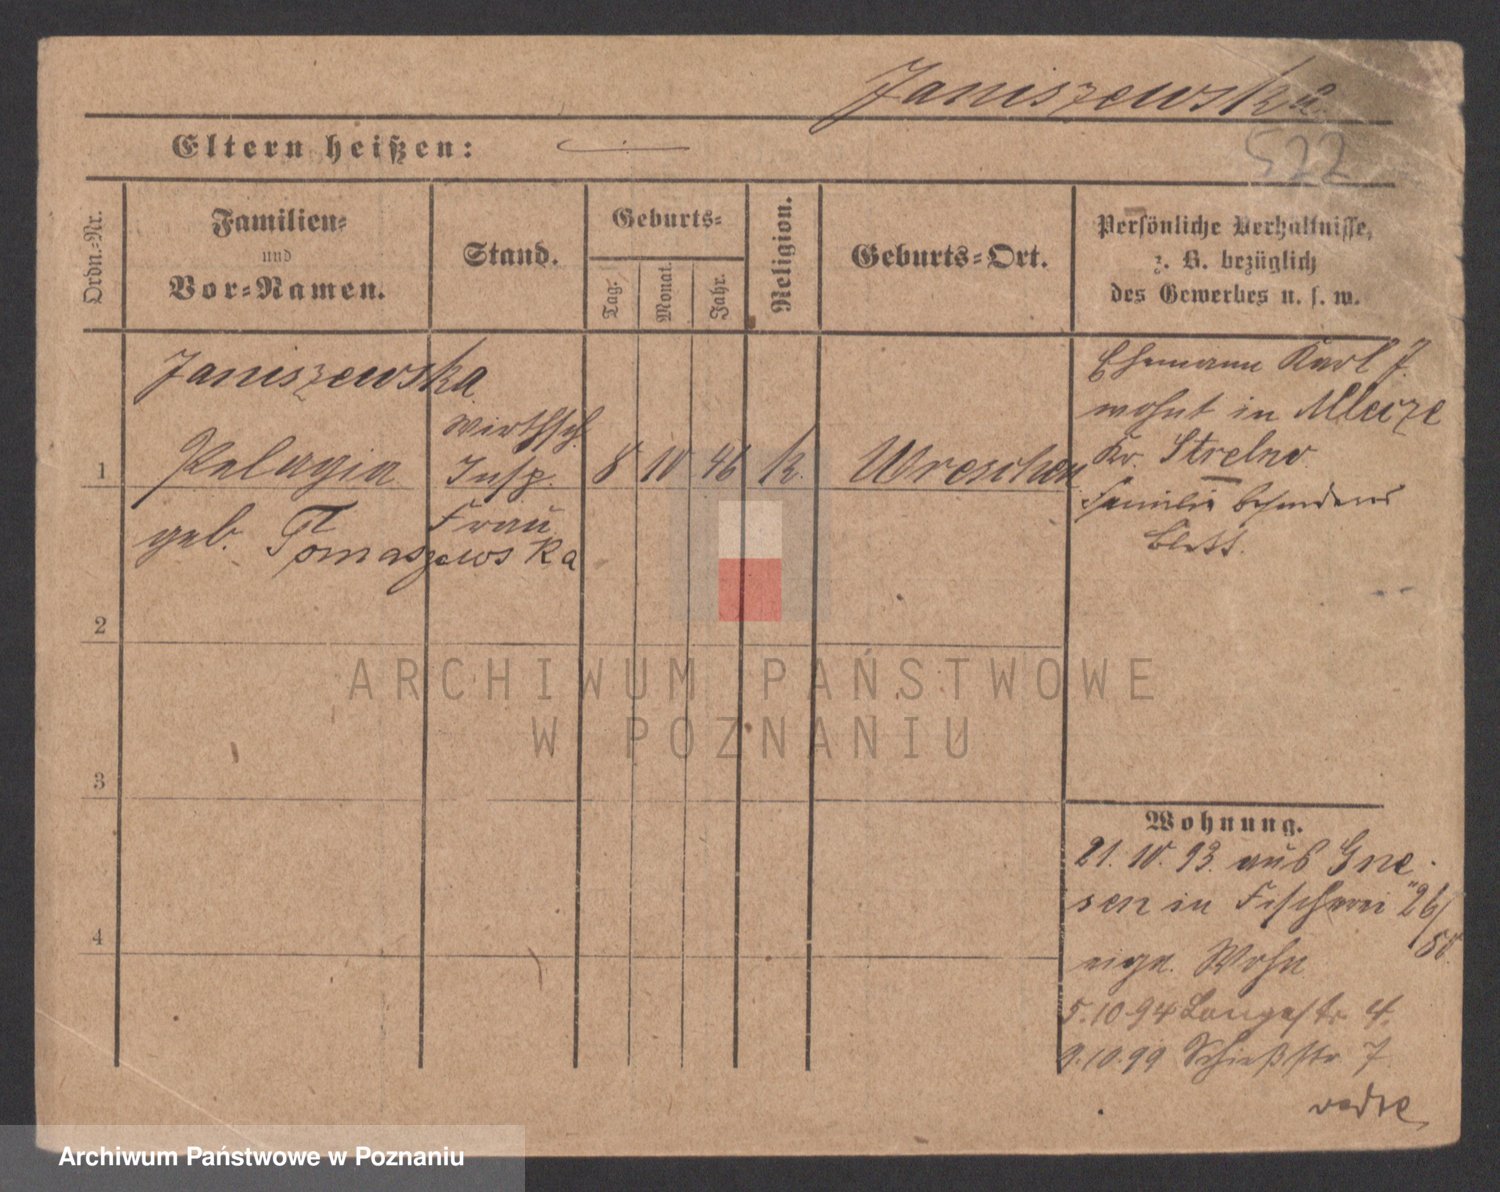 Janiszewska
522
Eltern heißen: —
Ordn.-Nr.
Familien-
und
Vor-Namen.
Stand.
Geburts-
Tag.
Monat.
Jahr.
Religion.
Geburts-Ort.
Persönliche Verhältnisse,
z. B. bezüglich
des Gewerbes u. s. w.
Janiszewska
1 Pelagia
geb. Tomaszewska
Wirthsch.
Insp.
Frau
8 10 46 k. Wreschen
Ehemann Karl J.
wohnt in Mlecze
Kr. Strelno
Familie besonderes
Blatt.
2
3
4
ARCHIWUM PAŃSTWOWE
W POZNANIU
Wohnung.
21. 10. 93. aus Gne-
sen in Fischerei 26/
eige. Wohn
5.10.94 Langestr. 4.
9.10.99 Schießstr. 7
Archiwum Państwowe w Poznaniu